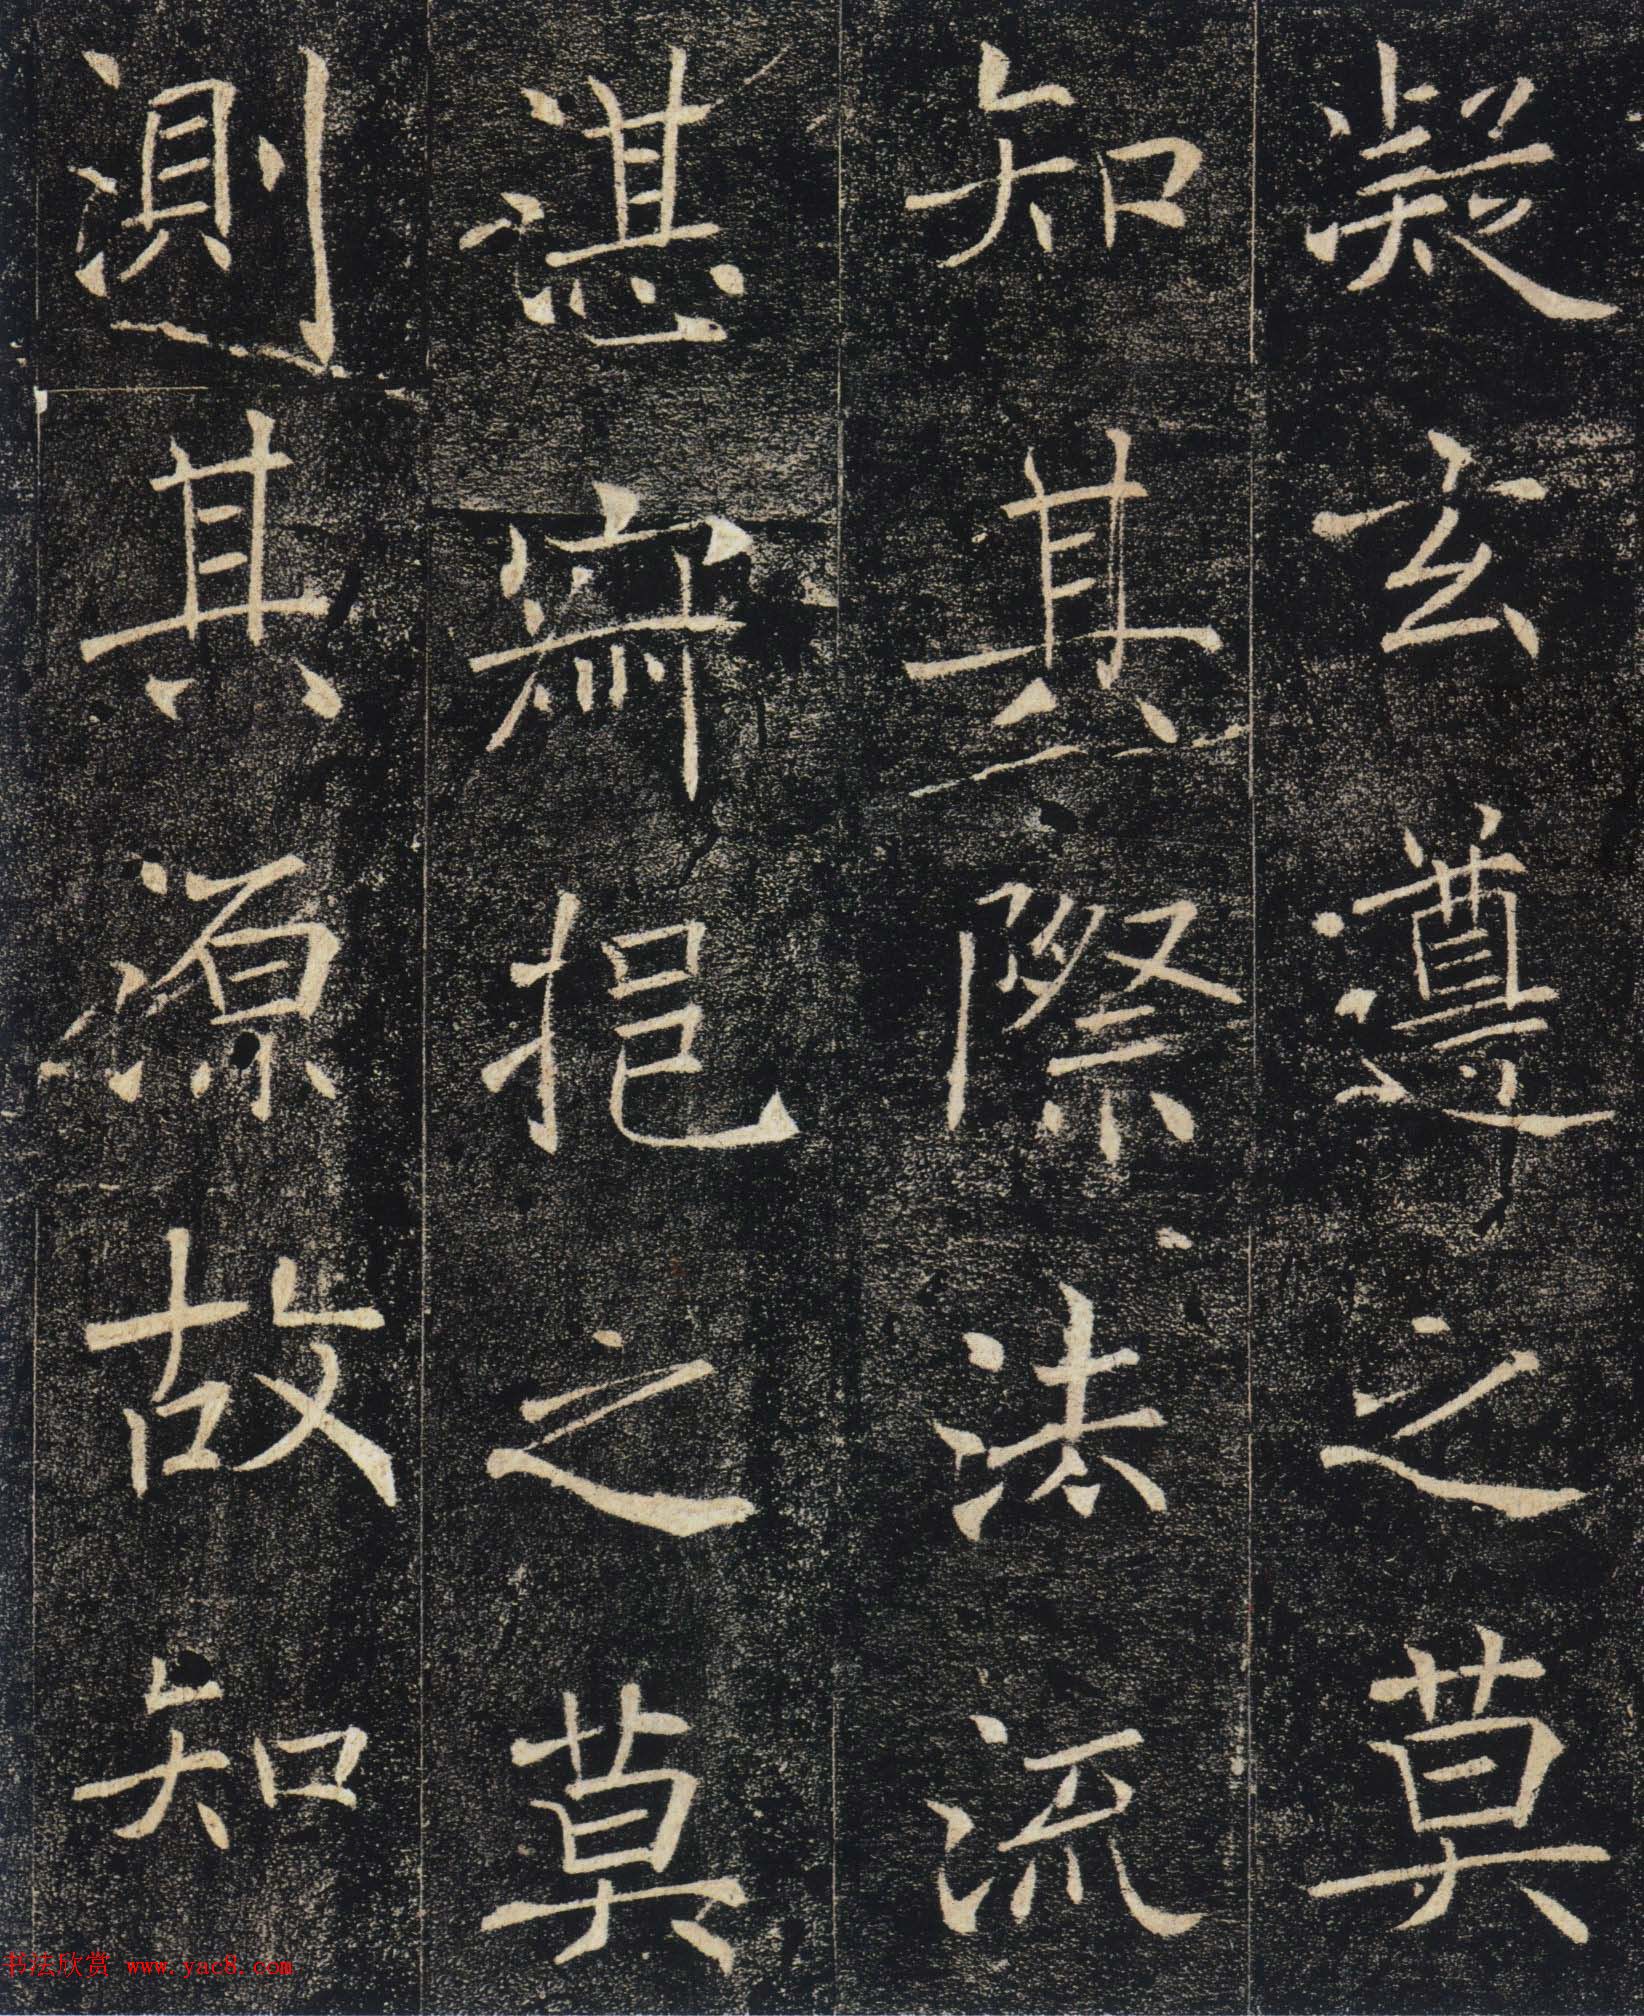 凝玄遵之莫
知其際法流
湛寂挹之莫
測其源故知
书法欣赏 www.yac8.com